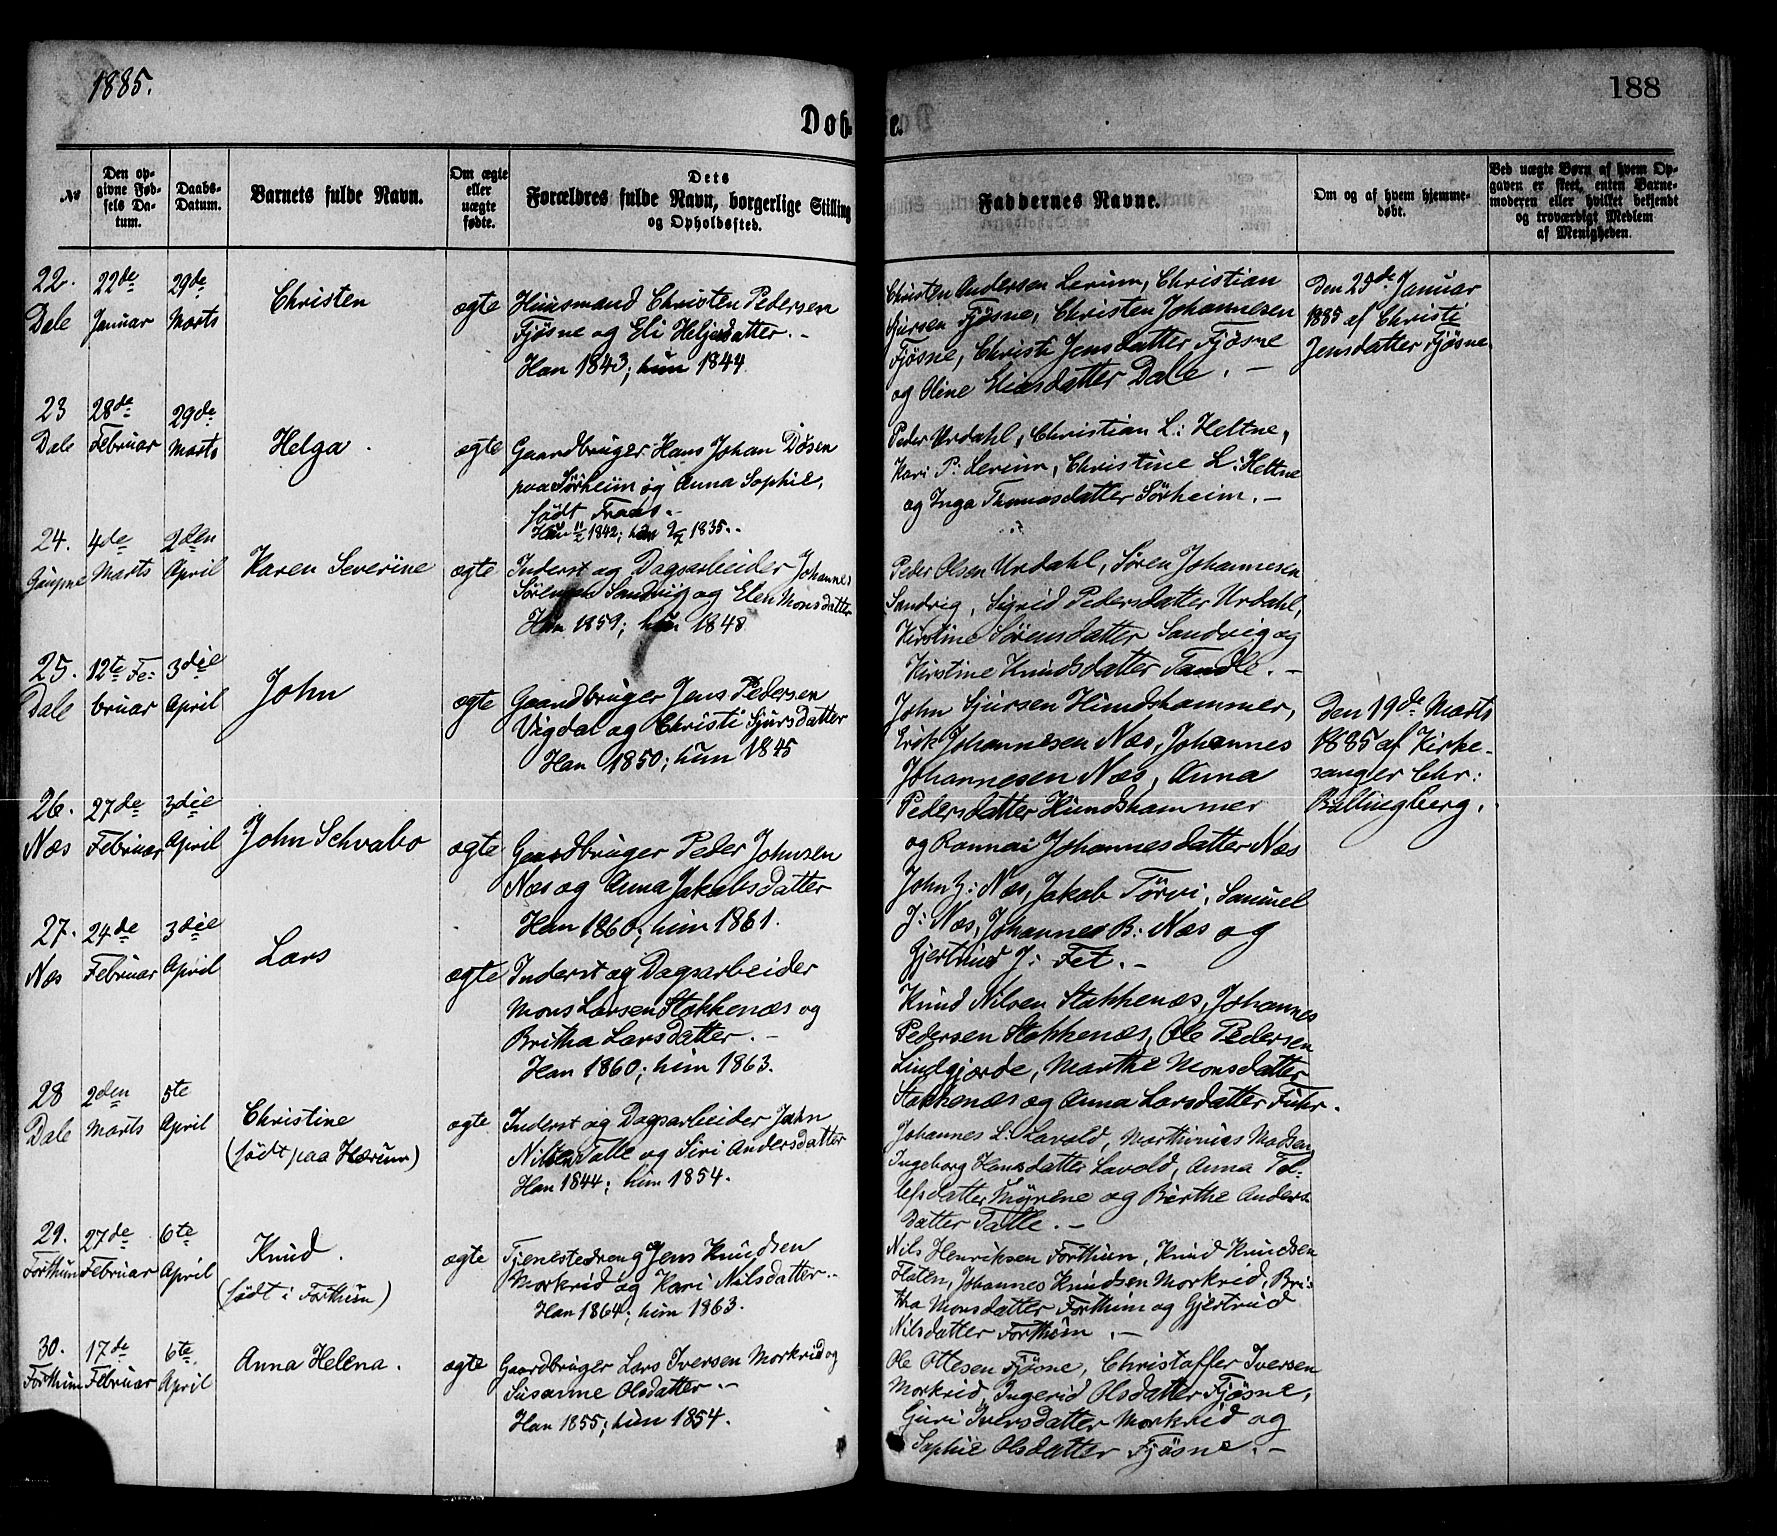 1885.
188
Dob-
te.
No
Den op-
givne Fød-
sels Da-
tum.
Daabs-
Datum.
Barnets fulde Navn.
Om ægte
eller
uægte
fødte.
Dets
Forældres fulde Navn, borgerlige Stilling
og Opholdssted.
Faddernes Navne.
Om og af hvem hjemme-
døbt.
Ved uægte Børn af hvem Op-
gaven er skeet, enten Barne-
moderen eller hvilket bekjendt
og troværdigt Medlem
af Menigheden.
22.
Dale
22de
Januar
29de
Marts
Christen
ægte
Huusmand Christen Pedersen
Fjøsne og Eli Heljesdatter.-
Han 1843; hun 1844
Christen Andersen Lerum, Christian
Sjursen Fjøsne, Christen Johannesen
Fjøsne, Christi Jensdatter Fjøsne
og Oline Eliasdatter Dale. -
Den 25de Januar
1885 af Christi
Jensdatter Fjøsne.
23
Dale
28de
Februar
29de
Marts
Helga.
ægte
Gaardbruger Hans Johan Døsen
paa Sørheim og Anna Sophie,
født Traas.
Han 11/2 1842; hun 1835.
Peder Urdahl, Christian L: Heltne,
Kari P: Lerum, Christine L: Heltne
og Inga Thomasdatter Sørheim. -
24.
Gaupne
4de
Marts
2den
April
Karen Severine
ægte
Inderst og Dagsarbeider Johannes
Sørensen Sandvig og Elen Monsdatter
Han 1859; hun 1848
Peder Olsen Urdahl, Søren Johannesen
Sandvig, Sigrid Pedersdatter Urdahl,
Kirstine Sørensdatter Sandvig og
Kirstine Knudsdatter Tandle. -
25.
Dale
12te Fe-
bruar
3die
April
John
ægte
Gaardbruger Jens Pedersen
Vigdal og Christi Sjursdatter
Han 1850; hun 1845
John Sjursen Hundshammer,
Erik Johannesen Næs, Johannes
Johannesen Næs, Anna
Pedersdatter Hundshammer
og Rannai Johannesdatter Næs
Den 19de Marts
1885 af Kirke-
sanger Chr:
Ballingberg.
26.
Næs
27de
Februar
3die
April
John Schvabo
ægte
Gaardbruger Peder Johnsen
Næs og Anna Jakobsdatter
Han 1860; hun 1861.
John J: Næs, Jakob Tørvi, Samuel
J: Næs, Johannes B: Næs og
Gjertrud J: Fet. -
27.
Næs
24de
Februar
3die
April
Lars
ægte
Inderst og Dagsarbeider
Mons Larsen Stokkenæs og
Britha Larsdatter. -
Han 1860; hun 1863.
Knud Nilsen Stokkenæs, Johannes
Pedersen Stokkenæs, Ole Pedersen
Lindgjerde, Marthe Monsdatter
Stokkenæs og Anna Larsdatter Fuhr.
28
Dale
2den
Marts
5te
April
Christine
(født paa Hærum)
ægte
Inderst og Dagsarbeider John
Nilsen Talle og Siri Andersdatter
Han 1844; hun 1854.
Johannes L: Lavold, Marthinus Madsen
Ingeborg Hansdatter Lavold, Anna Tol-
lefsdatter Myrene og Birthe Anders-
datter Talle. -
29.
Forthun
27de
Februar
6te
April
Knud.
(født i Forthun)
ægte
Tjenestedreng Jens Knudsen
Morkrid og Kari Nilsdatter.-
Han 1864; hun 1863.
Nils Henriksen Forthun, Knud Knudsen
Flaten, Johannes Knudsen Morkrid, Bri-
tha Monsdatter Forthun og Gjertrud
Nilsdatter Forthun. -
30.
Forthun
17de
Februar
6te
April
Anna Helena.
ægte
Gaardbruger Lars Iversen Morkrid og
Susanne Olsdatter.-
Han 1855; hun 1854.
Ole Ottesen Fjøsne, Christoffer Iversen
Morkrid, Ingerid Olsdatter Fjøsne,
Guri Iversdatter Morkrid og
Sophie Olsdatter Fjøsne. -